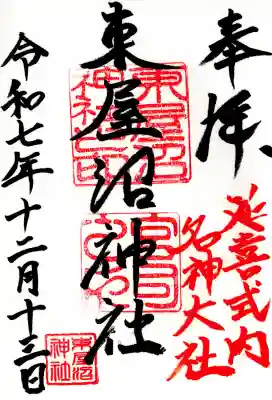 奉拝
延喜式内
名神大社
東屋沼神社
東屋沼
神社之印
宮司
之印
令和七年十二月十三日
東屋沼
神社